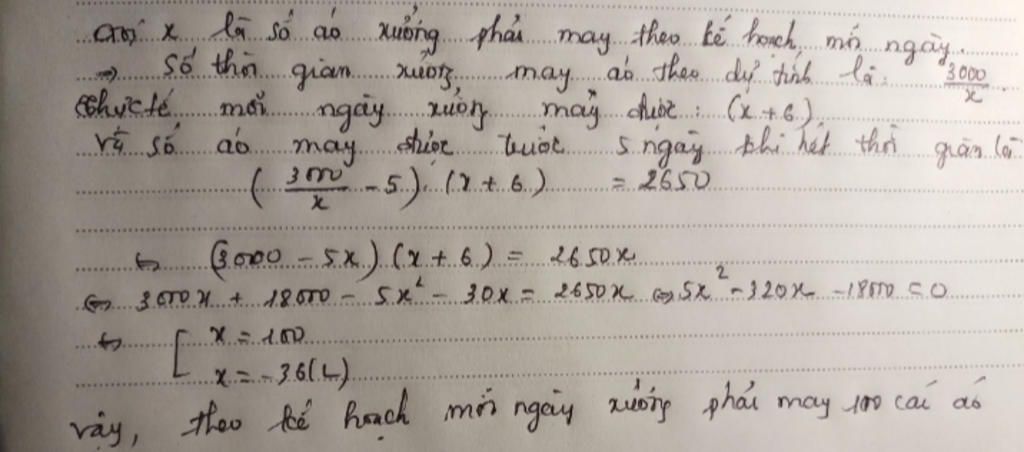 Gọi x là số áo xưởng phải may theo kế hoạch mỗi ngày.
⇒ Số thời gian xưởng may áo theo dự tính là: 3000/x
Thực tế mỗi ngày xưởng may được: (x + 6)
Và số áo may được trước 5 ngày khi hết thời gian là
(3000/x - 5).(x + 6) = 2650
⇔ (3000 - 5x)(x + 6) = 2650x
⇔ 3000x + 18000 - 5x² - 30x = 2650x ⇔ 5x² - 320x - 18000 = 0
⇔ [ x = 100
x = -36 (L)
vậy, theo kế hoạch mỗi ngày xưởng phải may 100 cái áo